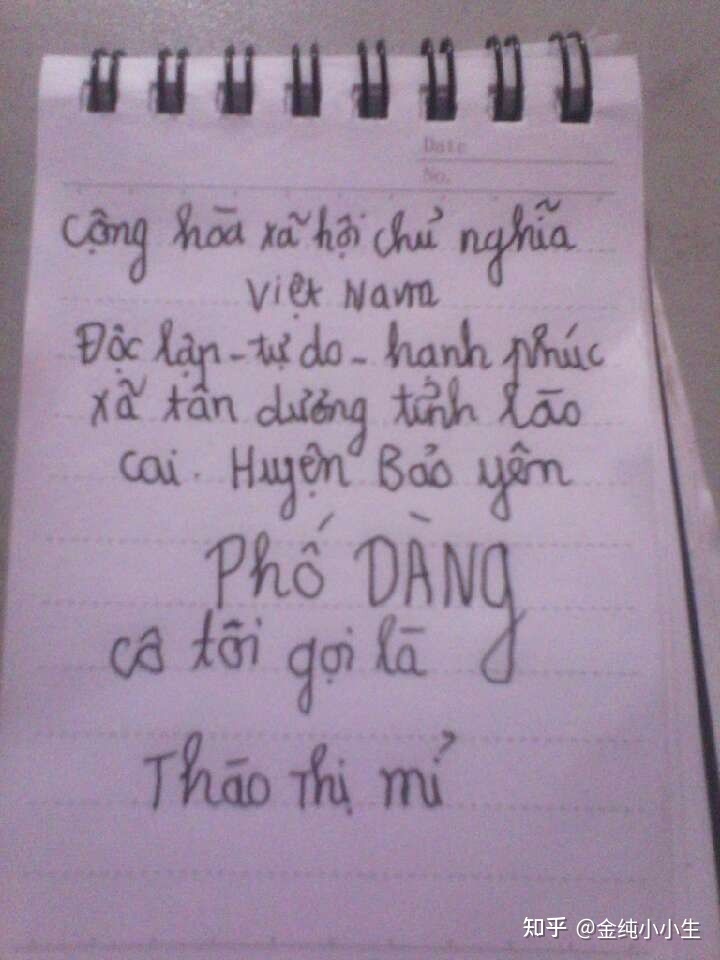 Date
No.
cộng hòa xã hội chủ nghĩa
Việt Nam
Độc lập - tự do - hanh phúc
xã tân dương tỉnh lão
cai. Huyện Bảo yên
Phố DÀNg
cô tôi gọi lā
Thāo Thị mỉ
知乎 @金纯小小生